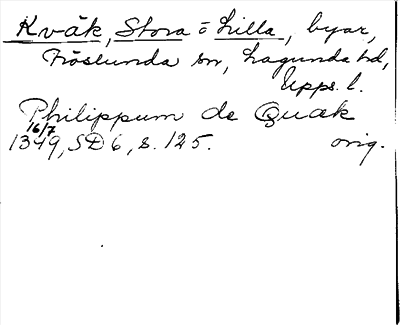 Kvåk, Stora o Lilla, byar,
Fröslunda sn, Lagunda hd,
Upps. l.
Philippum de Quak
16/7
1349, SD 6, s. 125. orig.